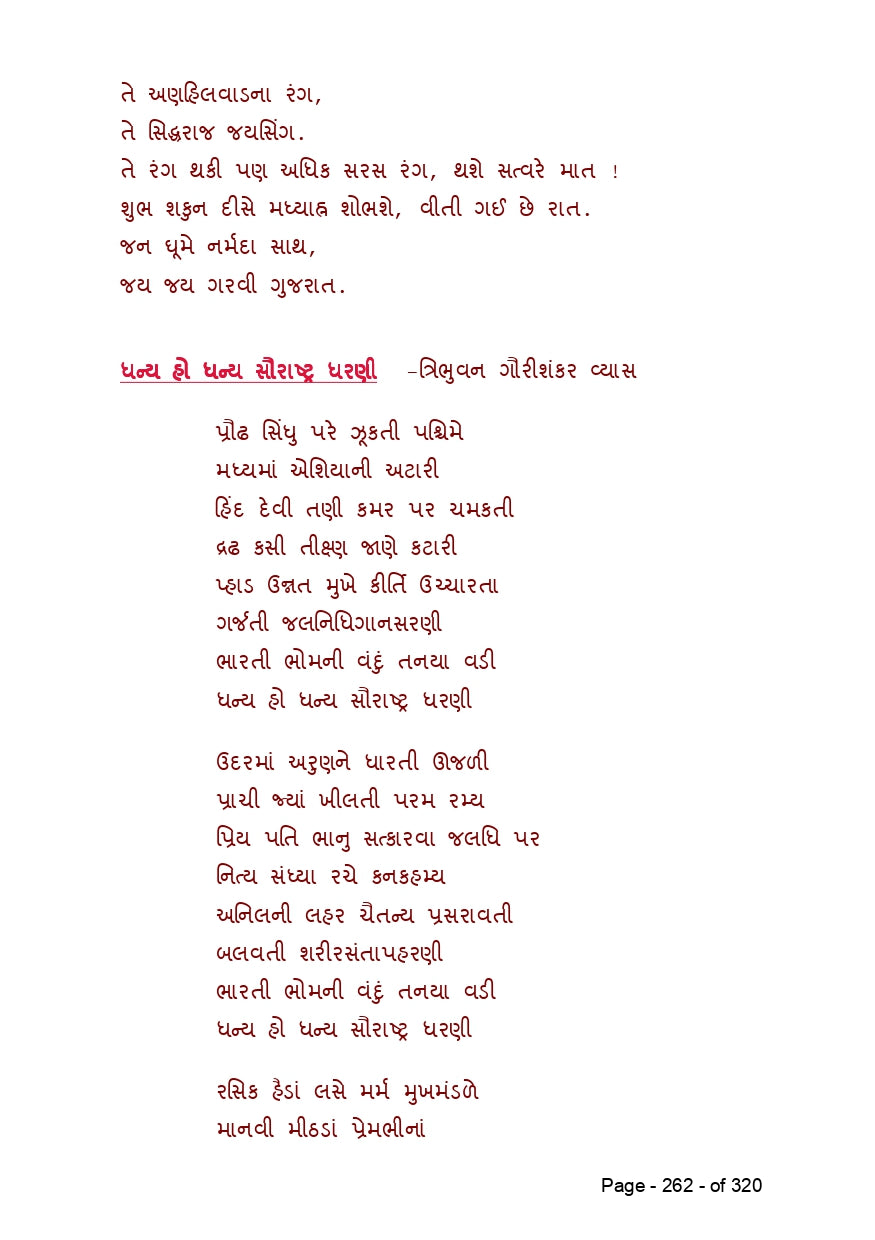 તે અણહિલવાડના રંગ,
તે સિદ્ધરાજ જયસિંગ.
તે રંગ થકી પણ અધિક સરસ રંગ, થશે સત્વરે માત !
શુભ શકુન દીસે મધ્યાહ્ન શોભશે, વીતી ગઈ છે રાત.
જન ઘૂમે નર્મદા સાથ,
જય જય ગરવી ગુજરાત.
ધન્ય હો ધન્ય સૌરાષ્ટ્ર ધરણી -ત્રિભુવન ગૌરીશંકર વ્યાસ
પ્રૌઢ સિંધુ પરે ઝૂકતી પશ્ચિમે
મધ્યમાં એશિયાની અટારી
હિંદ દેવી તણી કમર પર ચમકતી
દ્રઢ કસી તીક્ષ્ણ જાણે કટારી
પ્હાડ ઉન્નત મુખે કીર્તિ ઉચ્ચારતા
ગર્જતી જલનિધિગાનસરણી
ભારતી ભોમની વંદું તનયા વડી
ધન્ય હો ધન્ય સૌરાષ્ટ્ર ધરણી
ઉદરમાં અરુણને ધારતી ઊજળી
પ્રાચી જ્યાં ખીલતી પરમ રમ્ય
પ્રિય પતિ ભાનુ સત્કારવા જલધિ પર
નિત્ય સંધ્યા રચે કનકહમ્ય
અનિલની લહર ચૈતન્ય પ્રસરાવતી
બલવતી શરીરસંતાપહરણી
ભારતી ભોમની વંદું તનયા વડી
ધન્ય હો ધન્ય સૌરાષ્ટ્ર ધરણી
રસિક હૈડાં લસે મર્મ મુખમંડળે
માનવી મીઠડાં પ્રેમભીનાં
Page - 262 - of 320